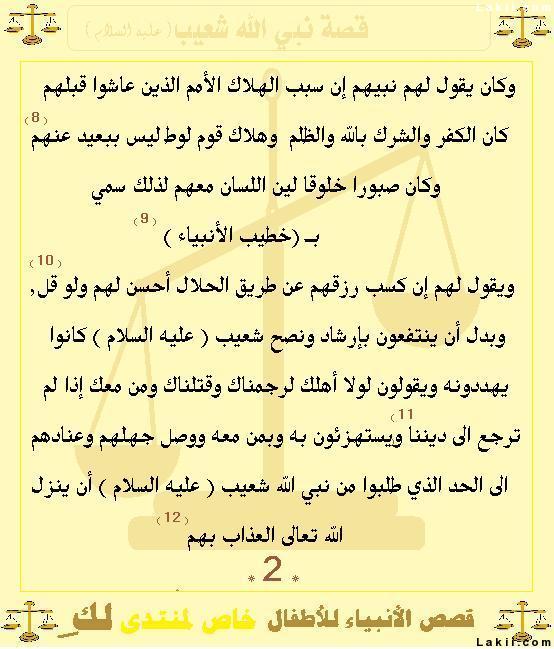 Lakii.com
قصة نبي الله شعيب ( عليه السلام )
وكان يقول لهم نبيهم إن سبب الهلاك الأمم الذين عاشوا قبلهم
كان الكفر والشرك بالله والظلم وهلاك قوم لوط ليس ببعيد عنهم (8)
وكان صبورا خلوقا لين اللسان معهم لذلك سمي
بـ (خطيب الأنبياء ) (9)
ويقول لهم إن كسب رزقهم عن طريق الحلال أحسن لهم ولو قل, (10)
وبدل أن ينتفعون بإرشاد ونصح شعيب ( عليه السلام ) كانوا
يهددونه ويقولون لولا أهلك لرجمناك وقتلناك ومن معك إذا لم
ترجع الى ديننا (11 ويستهزئون به وبمن معه ووصل جهلهم وعنادهم
الى الحد الذي طلبوا من نبي الله شعيب ( عليه السلام ) أن ينزل
الله تعالى العذاب بهم (12)
* 2 *
قصص الأنبياء للأطفال خاص لمنتدى لك
Lakii.com